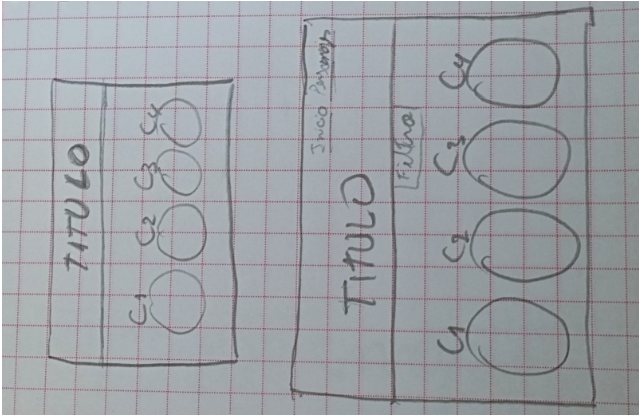 TITULO
C1 C2 C3 C4
Inicio
TITULO
Filtrar
C1 C2 C3 C4